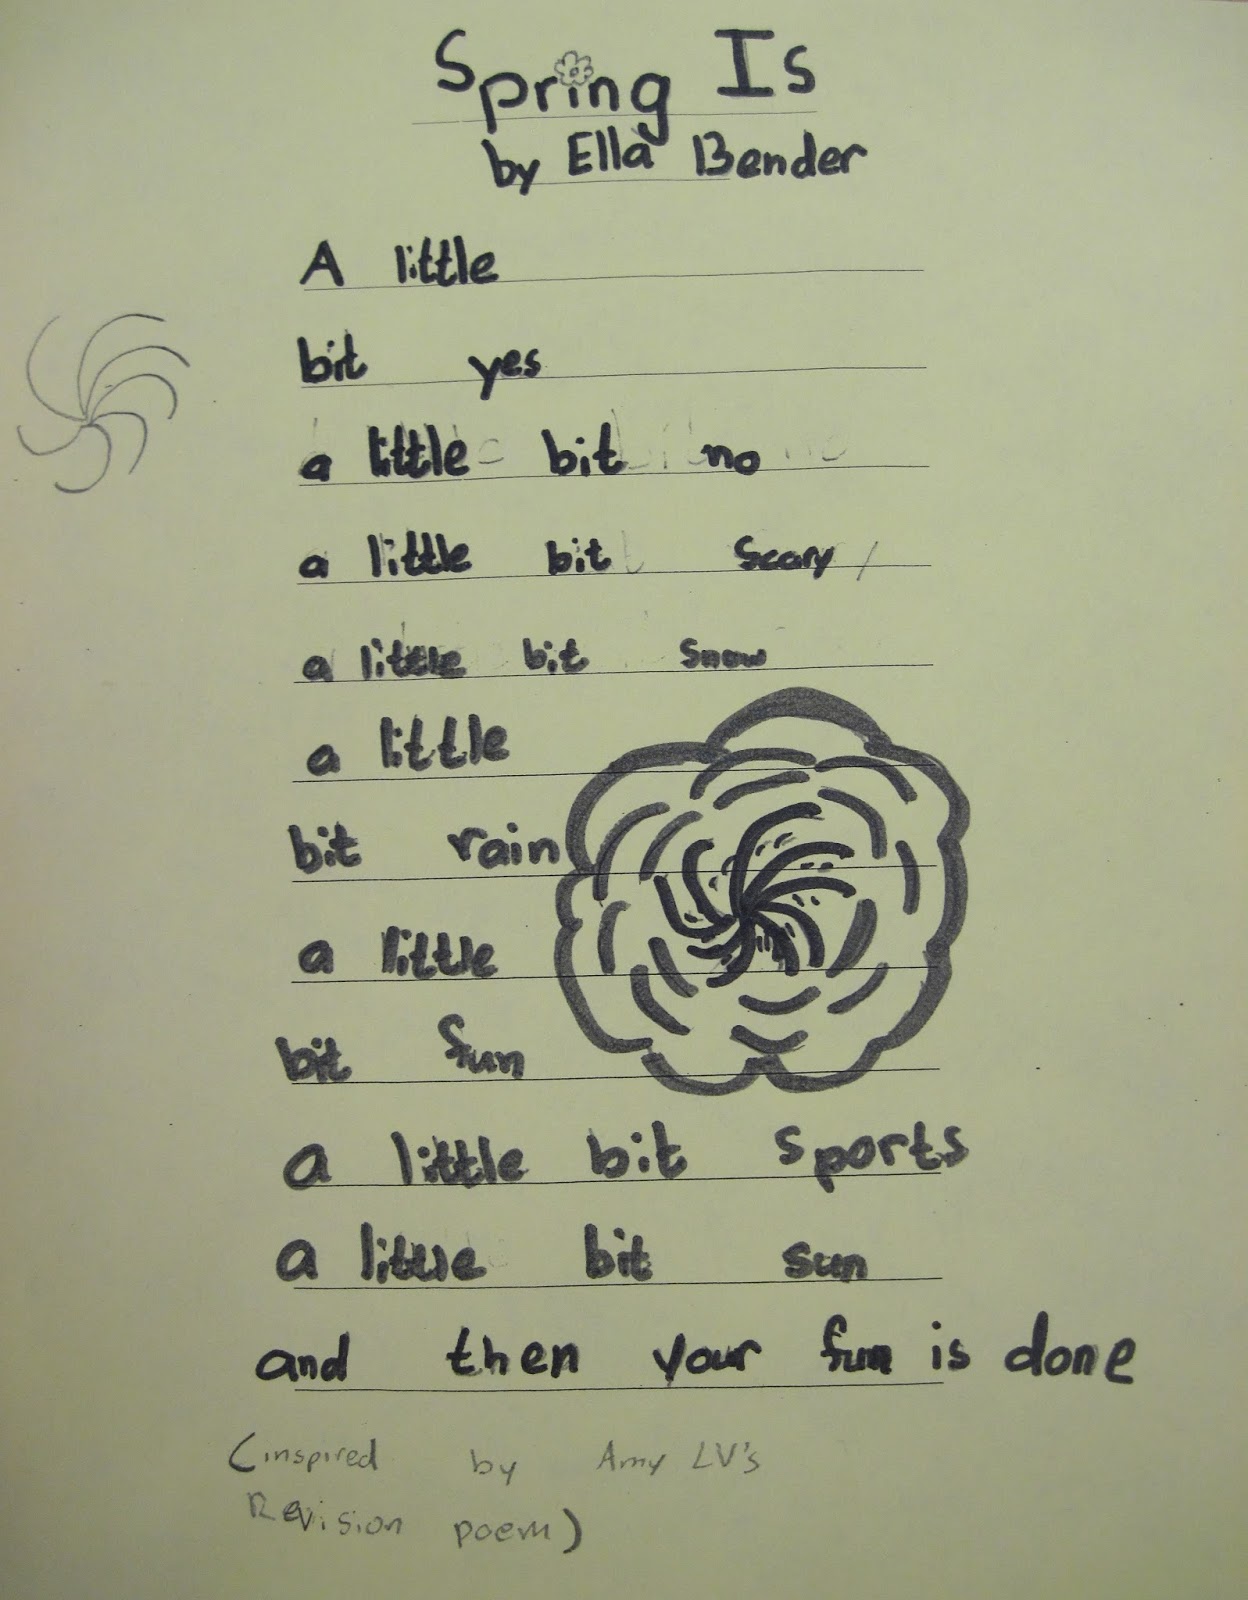 Spring Is
by Ella Bender
A little
bit yes
a little bit no
a little bit scary
a little bit snow
a little
bit rain
a little
bit fun
a little bit sports
a little bit sun
and then your fun is done
(inspired by Amy LV's
Revision poem)